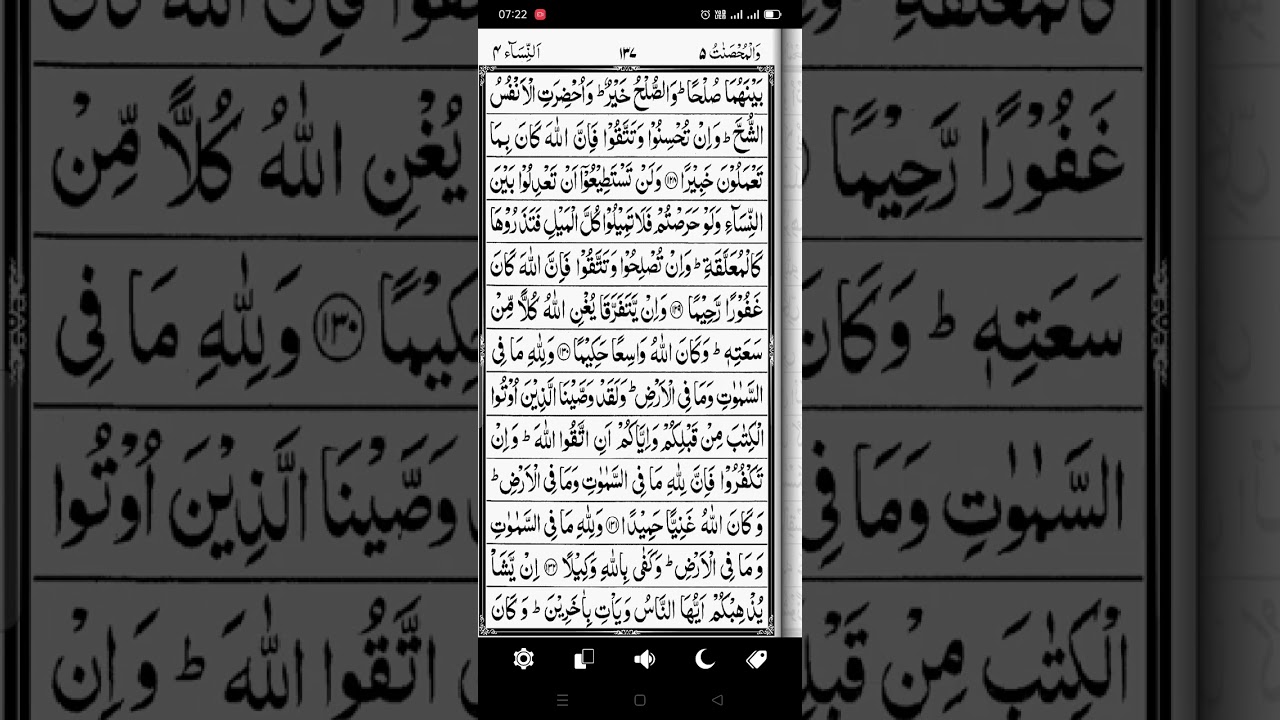 07:22
وَالْمُحْصَنٰتُ ۵ ۱۳۷ اَلنِّسَآء ۴
بَيْنَهُمَا صُلْحًا ؕ وَالصُّلْحُ خَيْرٌ ؕ وَاُحْضِرَتِ الْاَنْفُسُ
الشُّحَّ ؕ وَاِنْ تُحْسِنُوْا وَتَتَّقُوْا فَاِنَّ اللّٰهَ كَانَ بِمَا
تَعْمَلُوْنَ خَبِيْرًا ﴿۱۲۸﴾ وَلَنْ تَسْتَطِيْعُوْۤا اَنْ تَعْدِلُوْا بَيْنَ
النِّسَآءِ وَلَوْ حَرَصْتُمْ فَلَا تَمِيْلُوْا كُلَّ الْمَيْلِ فَتَذَرُوْهَا
كَالْمُعَلَّقَةِ ؕ وَاِنْ تُصْلِحُوْا وَتَتَّقُوْا فَاِنَّ اللّٰهَ كَانَ
غَفُوْرًا رَّحِيْمًا ﴿۱۲۹﴾ وَاِنْ يَّتَفَرَّقَا يُغْنِ اللّٰهُ كُلًّا مِّنْ
سَعَتِهٖ ؕ وَكَانَ اللّٰهُ وَاسِعًا حَكِيْمًا ﴿۱۳۰﴾ وَلِلّٰهِ مَا فِى
السَّمٰوٰتِ وَمَا فِى الْاَرْضِ ؕ وَلَقَدْ وَصَّيْنَا الَّذِيْنَ اُوْتُوا
الْكِتٰبَ مِنْ قَبْلِكُمْ وَاِيَّاكُمْ اَنِ اتَّقُوا اللّٰهَ ؕ وَاِنْ
تَكْفُرُوْا فَاِنَّ لِلّٰهِ مَا فِى السَّمٰوٰتِ وَمَا فِى الْاَرْضِ ؕ
وَكَانَ اللّٰهُ غَنِيًّا حَمِيْدًا ﴿۱۳۱﴾ وَلِلّٰهِ مَا فِى السَّمٰوٰتِ
وَمَا فِى الْاَرْضِ ؕ وَكَفٰى بِاللّٰهِ وَكِيْلًا ﴿۱۳۲﴾ اِنْ يَّشَاْ
يُذْهِبْكُمْ اَيُّهَا النَّاسُ وَيَاْتِ بِاٰخَرِيْنَ ؕ وَكَانَ